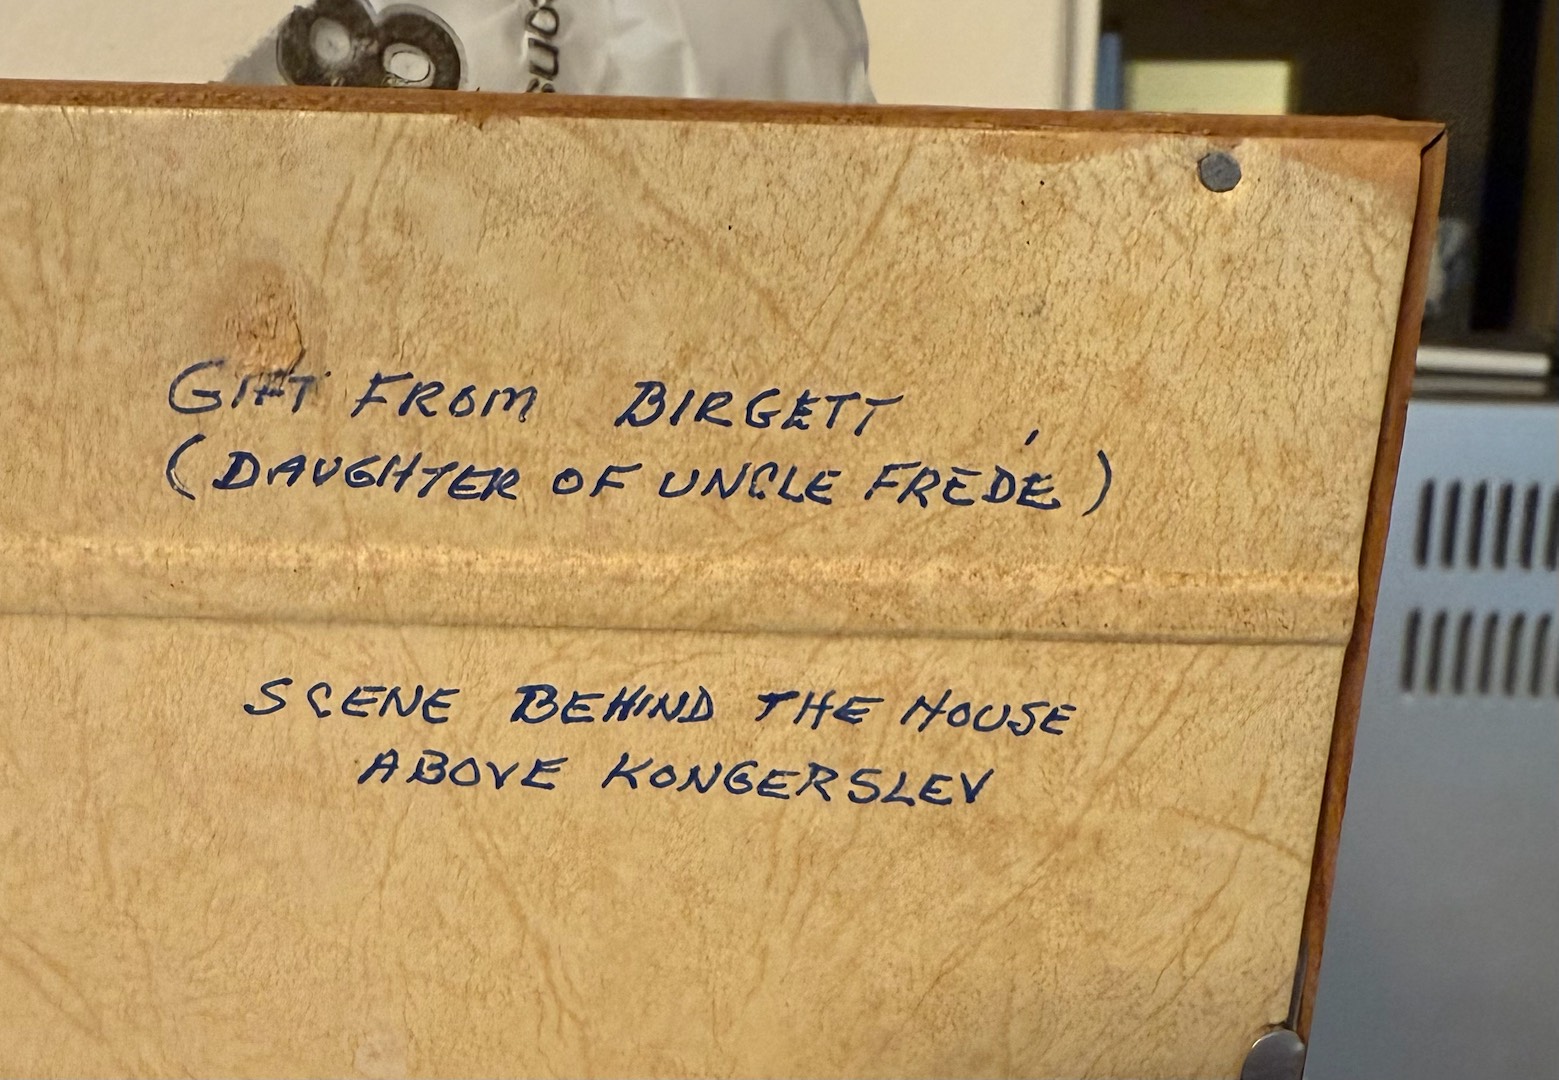 GIFT FROM BIRGETT
(DAUGHTER OF UNCLE FREDÉ)
SCENE BEHIND THE HOUSE
ABOVE KONGERSLEV